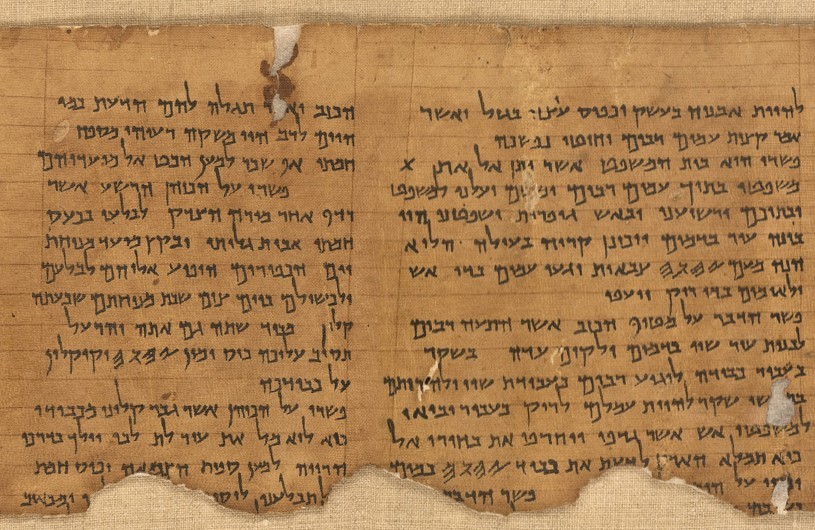 להיות אבניה בעשק וכפיס עיצה בגזל ואשר
אמר קצות עמים רבים וחוטי נפשכה
פשרו הוא בית המשפט אשר יתן אל את X
משפטו בתוך עמים רבים ומשם יעלנו למשפט
ובתוכם ירשיענו ובאש גופרית ישפטנו הוי
בונה עיר בדמים ויכונן קריה בעולה הלוא
הנה מעם 𐤉𐤄𐤅𐤄 צבאות יגעו עמים בדי אש
ולאומים בדי ריק ייעפו
פשר הדבר על מטיף הכזב אשר התעה רבים
לבנות עיר שוו בדמים ולקים עדה בשקר
בעבור כבודה לוגיע רבים בעבודת שוו ולהרותם
שי שקר להיות עמלם לריק בעבור יבואו
למשפטי אש אשר גדפו ויחרפו את בחירי אל
כיא תמלא הארץ לדעת את כבוד 𐤉𐤄𐤅𐤄 כמים
יכסו על פשר הדבר
הכזב תגלה להם הדעת כמי
היים לרב הוי משקה רעיהו מספח
חמתו אף שכר למען הבט אל מועדיהם
פשרו על הכוהן הרשע אשר
רדף אחר מורה הצדק לבלעו בכעס
חמתו אבית גלותו ובקץ מועד מנוחת
יום הכפורים הופיע אליהם לבלעם
ולכשילם ביום צום שבת מנוחתם שבעתה
קלון מכבוד שתה גם אתה והרעל
תסוב עליכה כוס ימין 𐤉𐤄𐤅𐤄 וקיקלון
על כבודכה
פשרו על הכוהן אשר גבר קלונו מכבודו
כיא לוא מל את עור לבו וילך בדרכי
הרוויה למען ספות הצמאה וכוס חמת
תבלענו ומכאוב